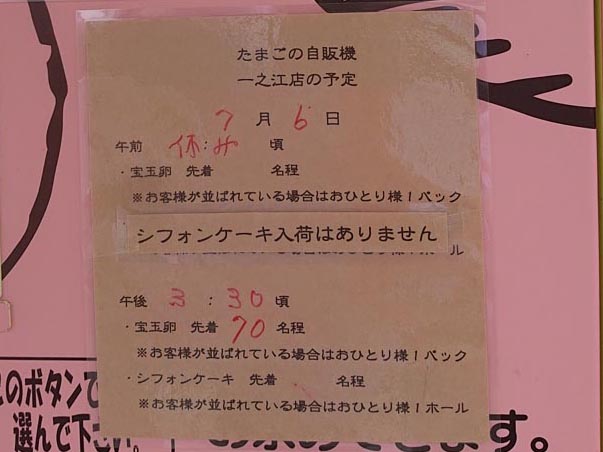 たまごの自販機
一之江店の予定
7月6日
午前 休:み 頃
・宝玉卵 先着 名程
※お客様が並ばれている場合はおひとり様1パック
シフォンケーキ入荷はありません
午後 3:30頃
・宝玉卵 先着 70名程
※お客様が並ばれている場合はおひとり様1パック
・シフォンケーキ 先着 名程
※お客様が並ばれている場合はおひとり様1ホール
のボタンで
選んで下さい。
ます。